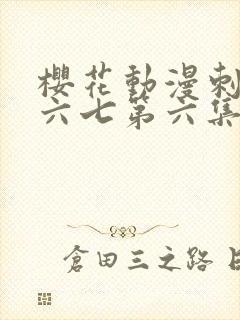 櫻花動漫刺
六七第六集
倉田三之路